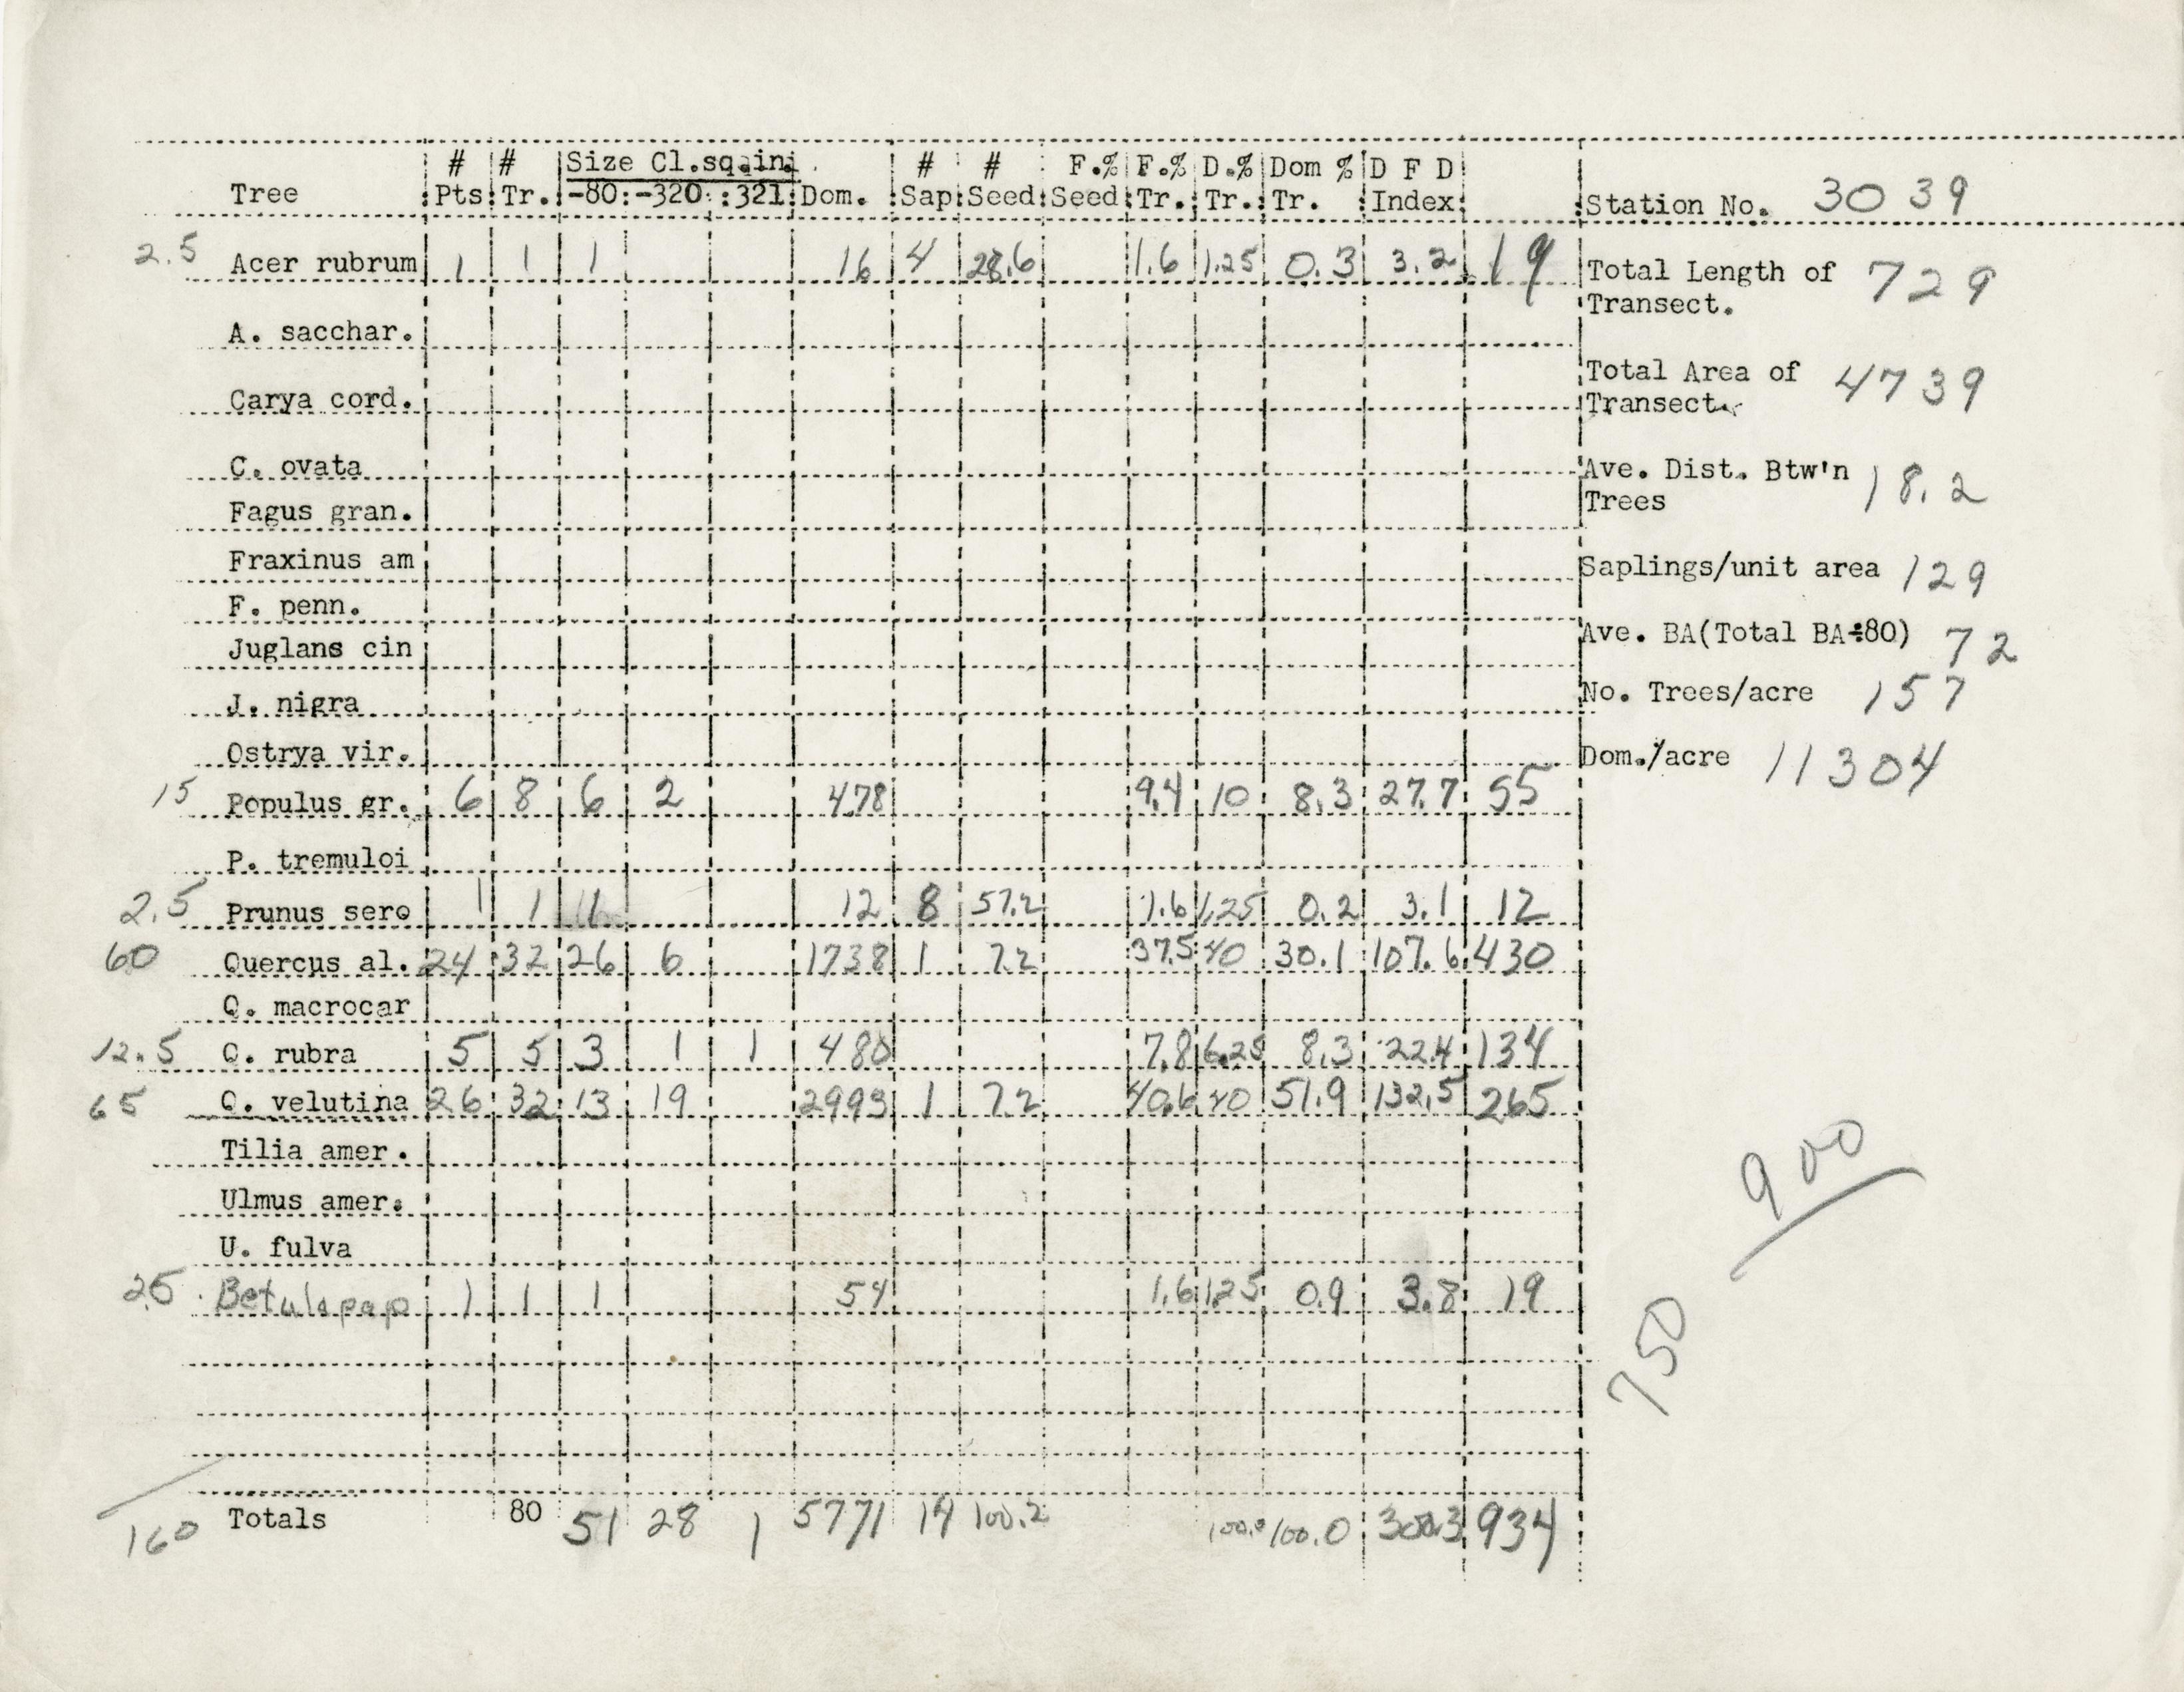 # # Size Cl.sq.in. # # F.% F.% D.% Dom % D F D
Tree Pts Tr. -80 -320 321 Dom. Sap Seed Seed Tr. Tr. Tr. Index Station No. 3039
2.5 Acer rubrum 1 1 1 16 4 28.6 1.6 1.25 0.3 3.2 19
Total Length of Transect. 729
A. sacchar.
Total Area of Transect. 4739
Carya cord.
C. ovata
Ave. Dist. Btw'n Trees 18.2
Fagus gran.
Fraxinus am
Saplings/unit area 129
F. penn.
Juglans cin
Ave. BA(Total BA÷80) 72
J. nigra
No. Trees/acre 157
Ostrya vir.
Dom./acre 11304
15 Populus gr. 6 8 6 2 478 9.4 10 8.3 27.7 55
P. tremuloi
2.5 Prunus sero 1 1 1 12 8 57.2 1.6 1.25 0.2 3.1 12
60 Quercus al. 24 32 26 6 1738 1 7.2 37.5 40 30.1 107.6 430
Q. macrocar
12.5 Q. rubra 5 5 3 1 1 480 7.8 6.25 8.3 22.4 134
65 Q. velutina 26 32 13 19 2993 1 7.2 40.6 40 51.9 132.5 265
Tilia amer.
900
Ulmus amer.
U. fulva
2.5 Betula pap 1 1 1 54 1.6 1.25 0.9 3.8 19
750
160 Totals 80 51 28 1 5771 14 100.2 100.0 100.0 300.3 934